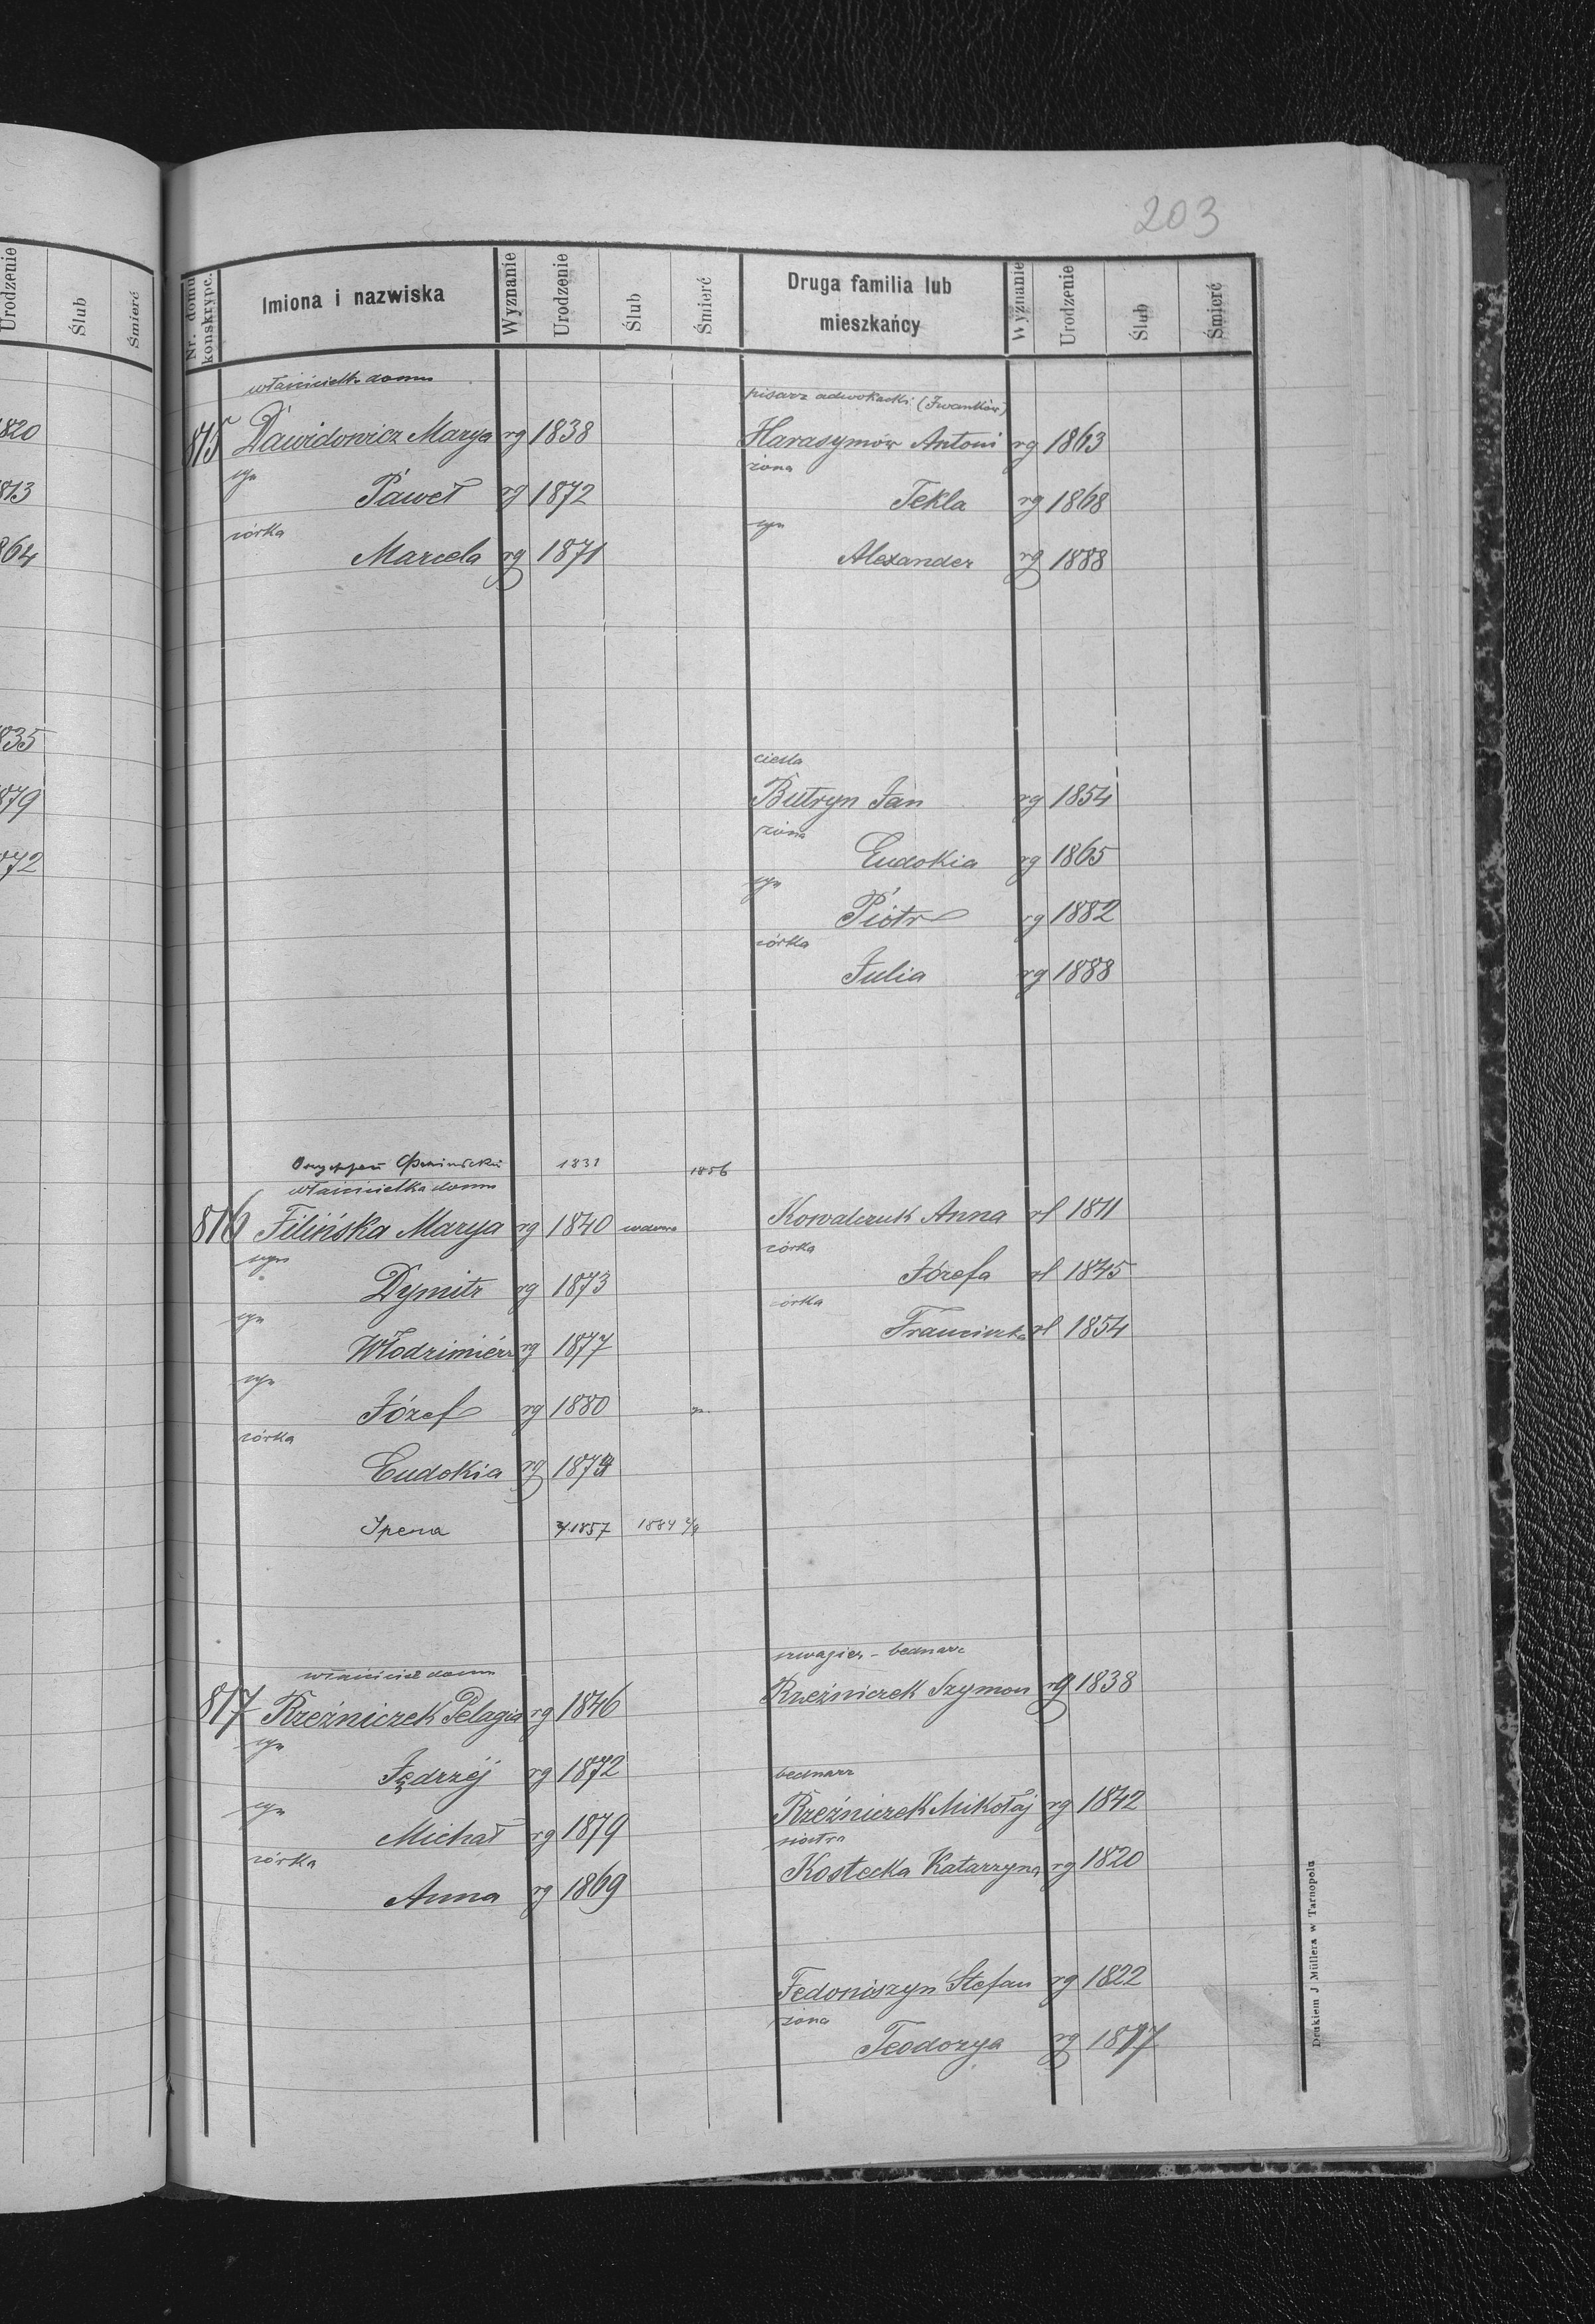 203
Urodzenie Ślub Śmierć
820
813
864
835
879
872
Nr. domu konskrypc. Imiona i nazwiska Wyznanie Urodzenie Ślub Śmierć Druga familia lub mieszkańcy Wyznanie Urodzenie Ślub Śmierć
właścicielka domu
815 Dawidowicz Marya rg 1838
syn
Paweł rg 1872
córka
Marcela rg 1871
pisarz adwokacki (Iwanków)
Harasymów Antoni rg 1863
żona
Tekla rg 1868
syn
Alexander rg 1888
cieśla
Butryn Jan rg 1854
żona
Eudokia rg 1865
syn
Piotr rg 1882
córka
Julia rg 1888
1831 1856
właścicielka domu
816 Filińska Marya rg 1840 wdowa
syn
Dymitr rg 1873
syn
Włodzimierz rg 1877
syn
Józef rg 1880
córka
Eudokia rg 1879
Ірена 1857 1884
Kowalczuk Anna rl 1811
córka
Józefa rl 1845
córka
Franciszka rl 1854
właściciel domu
817 Rzeźniczek Pelagia rg 1846
syn
Jędrzéj rg 1872
syn
Michał rg 1879
córka
Anna rg 1869
szwagier - bednarz
Rzeźniczek Szymon rg 1838
bednarz
Rzeźniczek Mikołaj rg 1842
siostra
Kostecka Katarzyna rg 1820
Fedoriszyn Stefan rg 1822
żona
Teodozya rg 1817
Drukiem J Müllera w Tarnopolu